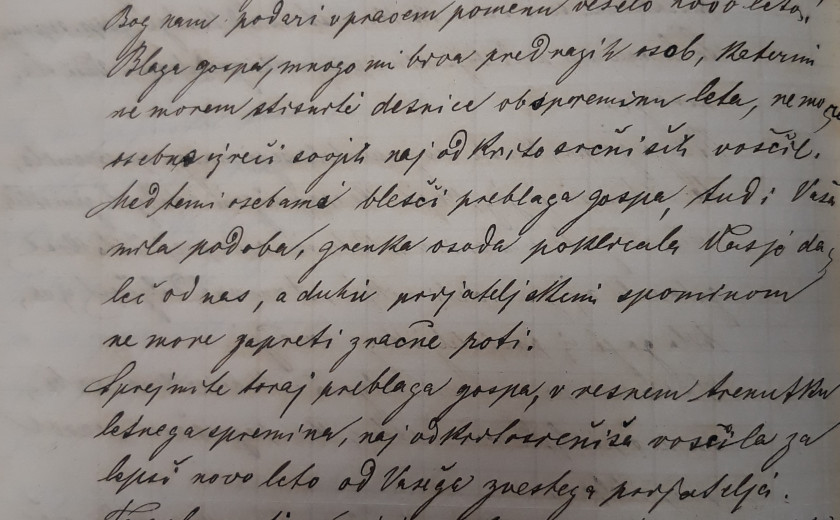 Bog nam podari v pravem pomenu veselo novo leto!
Blaga gospa, mnogo mi biva predragih osob, katerim
ne morem stisniti desnice ob spremimu leta, ne mo-
osebno izreči svojih najodkritosrčniših voščil.
Med temi osebami blešči preblaga gospa, tudi Vaša
mila podoba, grenka osoda poklicala Vas je da-
leč od nas, a duhu prijateljskimi spominom
ne more zapreti zračne poti.
Sprejmite toraj preblaga gospa, v resnem trenutku
letnega spremina, najodkritosrčniša voščila za
lepši novo leto od Vašega zvestega prijatelja.